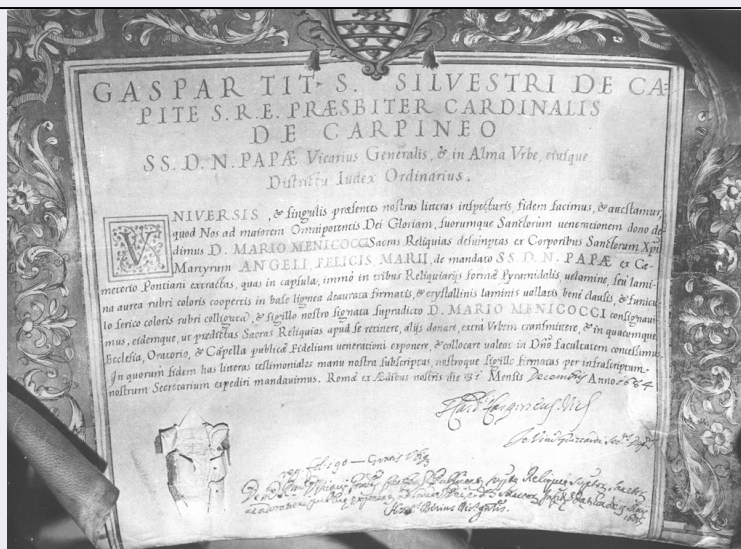 GASPAR TIT· S. SILVESTRI DE CA-
PITE S.R.E. PRÆSBITER CARDINALIS
DE CARPINEO
SS. D. N. PAPÆ Vicarius Generalis, & in Alma Vrbe, eiusque
Districtu Iudex Ordinarius.
VNIVERSIS, & singulis præsentes nostras litteras inspecturis, fidem facimus, & attestamur,
quod Nos ad maiorem Omnipotentis Dei Gloriam, suorumque Sanctorum uenerationem dono de-
dimus D. MARIO MENICOCCI Sacras Reliquias desumptas ex Corporibus Sanctorum Xp̃i
Martyrum ANGELI, FELICIS, MARII, de mandato SS D.N. PAPÆ ex Cœ-
meterio Pontiani extractas, quas in capsula, immò in tribus Reliquiarijs formæ Pyramidalis, uelamine, seu lami-
na aurea rubri coloris coopertis in base lignea deaurata firmatis, & crystallinis laminis uallatis benè clausis, & funicu-
lo serico coloris rubri colligata, & sigillo nostro signata supradicto D. MARIO MENICOCCI consignaui-
mus, eidemque, ut prædictas Sacras Reliquias apud se retinere, alijs donare, extra Vrbem transmittere, & in quacumque
Ecclesia, Oratorio, & Cappella publicæ Fidelium uenerationi exponere, & collocare ualeat in Dño facultatem concessimus.
In quorum fidem has litteras testimoniales manu nostra subscriptas, nostroque sigillo firmatas per infrascriptum
nostrum Secretarium expediri mandauimus. Romæ ex Ædibus nostris die Mensis Decembris Anno 1684